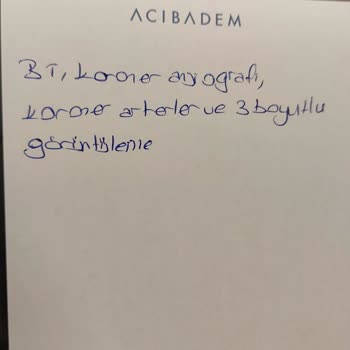 ACIBADEM
BT, koroner anjiografi,
koroner arterler ve 3 boyutlu
görüntüleme